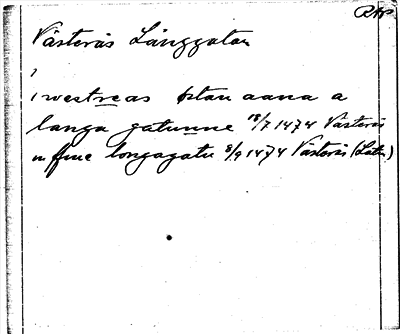 RAP
Västerås Långgatan
i westreas stan aana a
langa gatunne 18/7 1474 Västerås
in fine longagatu 8/9 1474 Västerås (Latin)